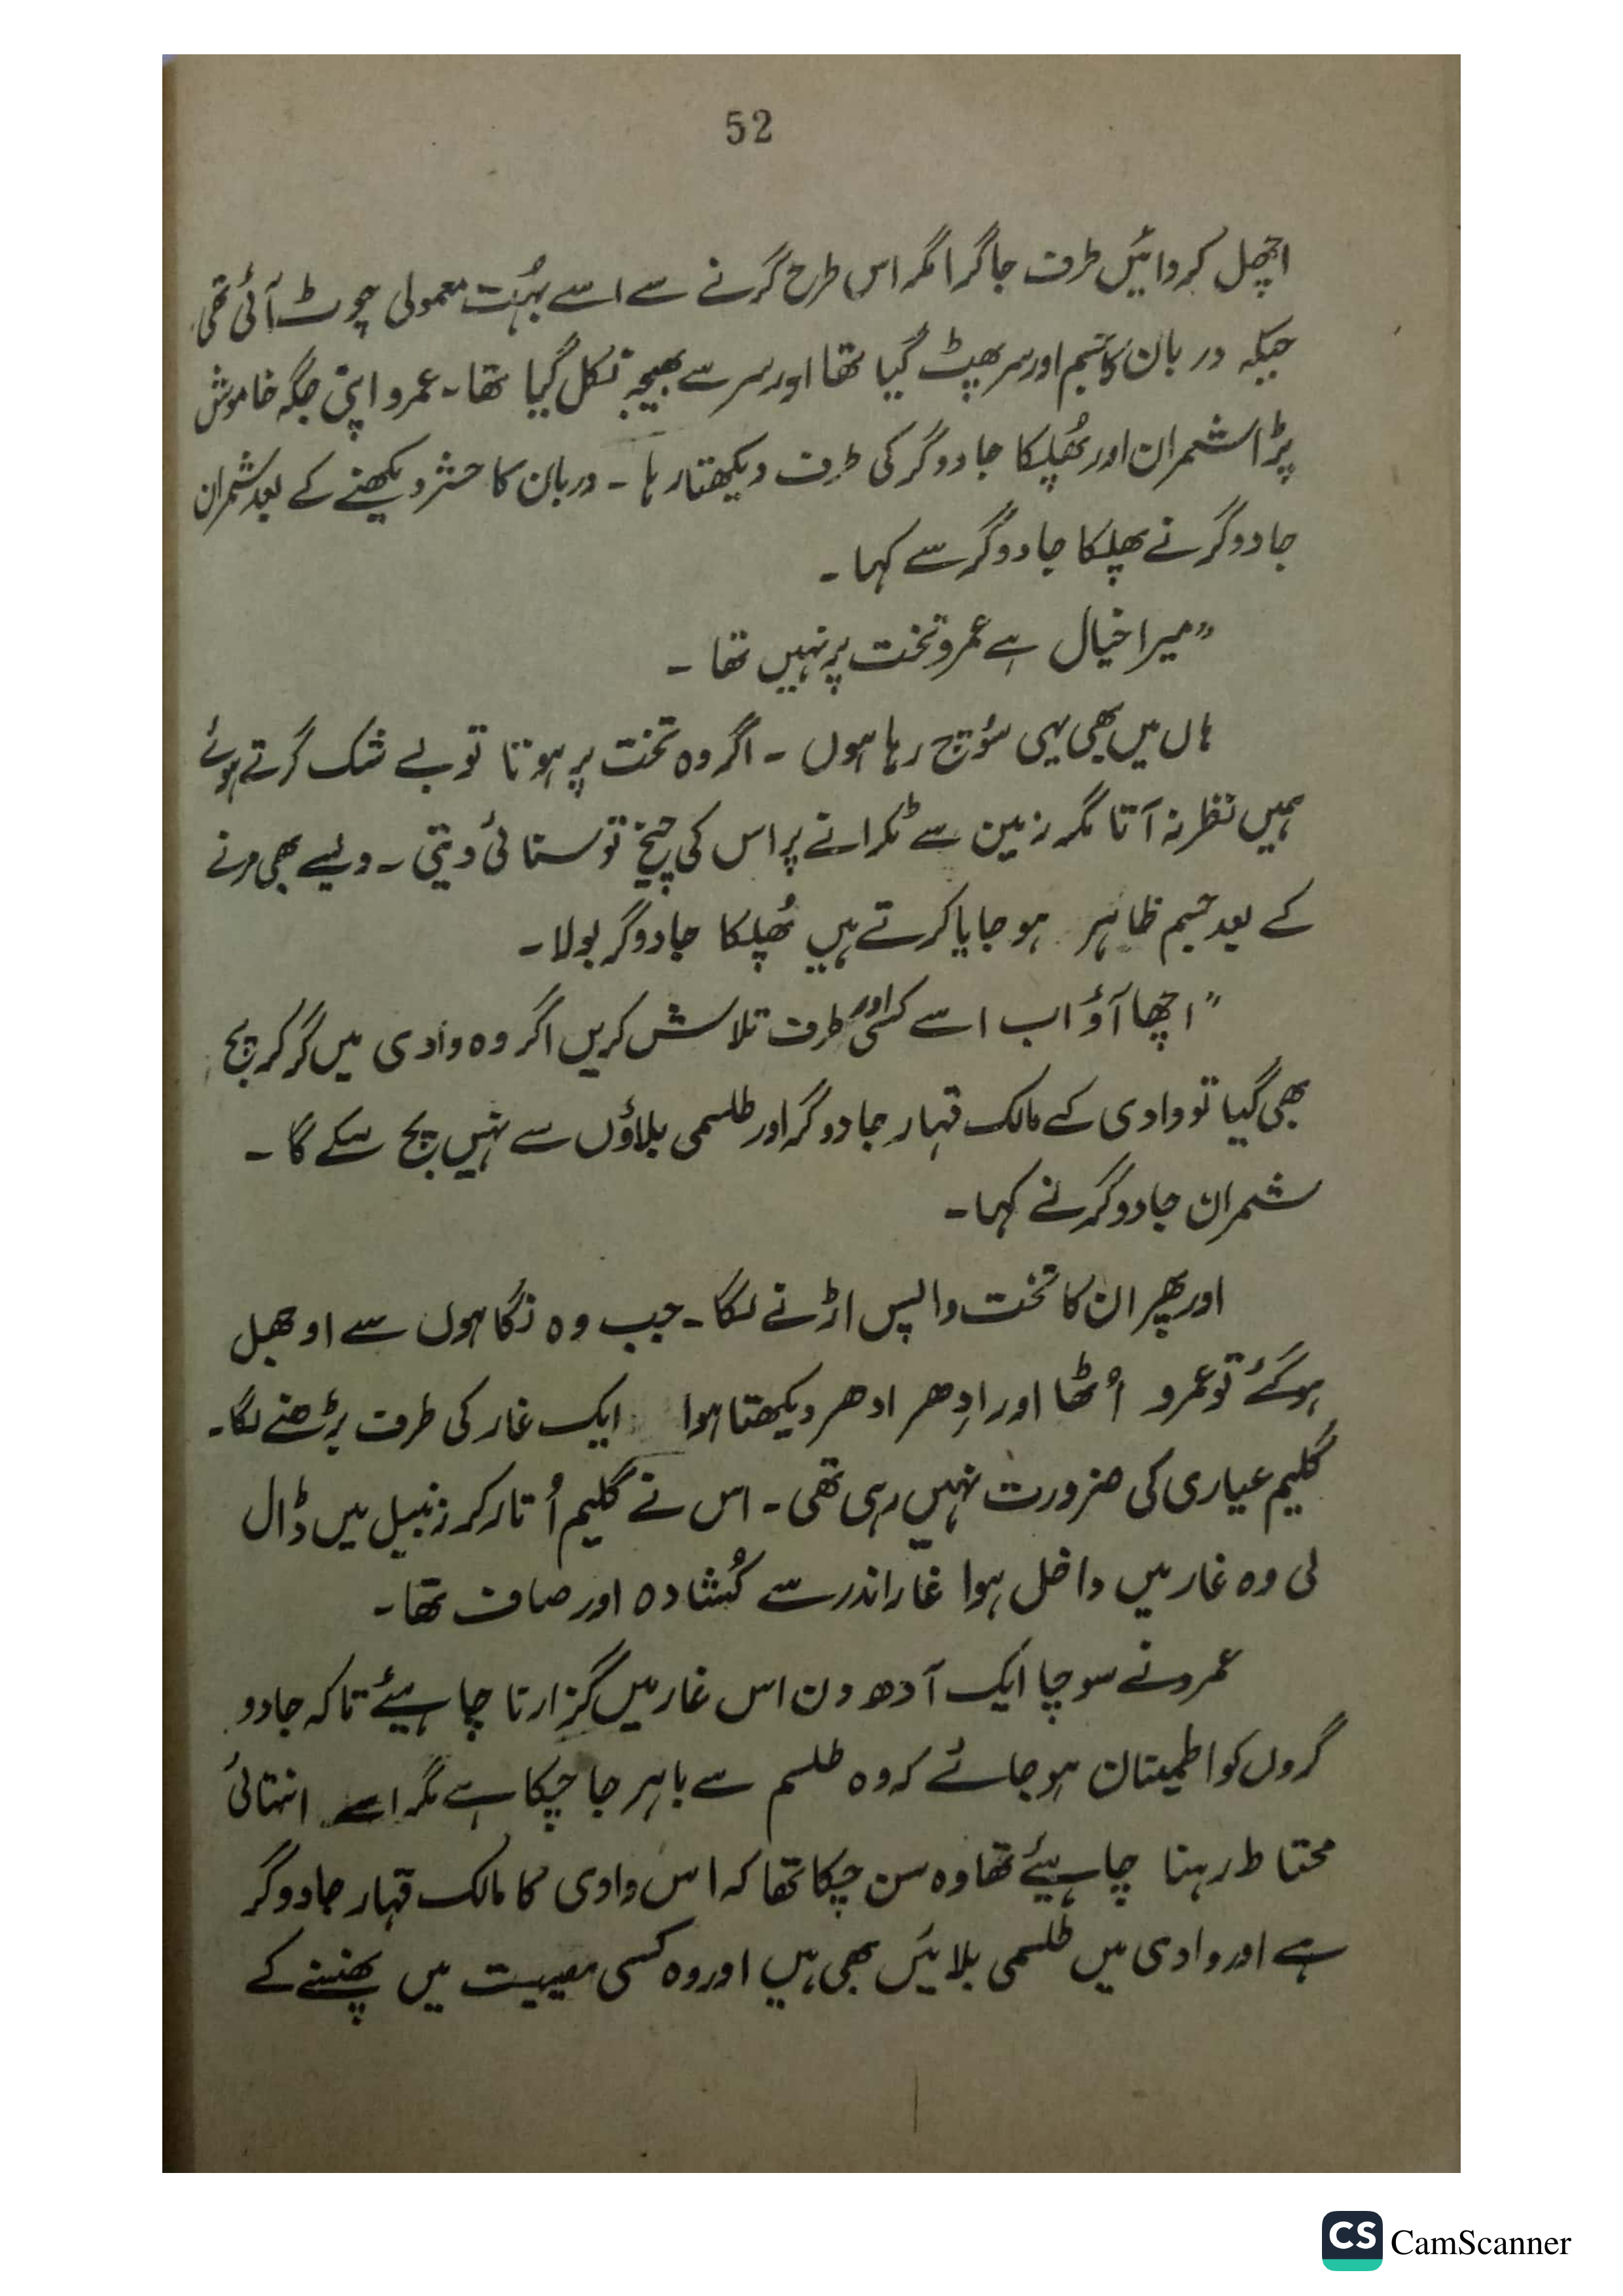 52
اچھل کر دائیں طرف جا گرا مگر اس طرح گرنے سے اسے بہُت معمولی چوٹ آئی تھی
جبکہ دربان کا جسم اور سر پھٹ گیا تھا اور سر سے بھیجہ نکل گیا تھا۔ عمرو اپنی جگہ خاموش
پڑا شمران اور پھُلپکا جادوگر کی طرف دیکھتا رہا ۔ دربان کا حشر دیکھنے کے بعد شمران
جادوگر نے پھلپکا جادوگر سے کہا ۔
”میرا خیال ہے عمرو تخت پر نہیں تھا ۔
ہاں میں بھی یہی سوُچ رہا ہوں ۔ اگر وہ تخت پر ہوتا تو بے شک گرتے ہوئے
ہمیں نظر نہ آتا مگر زمین سے ٹکرانے پر اس کی چیخ تو سنائی دیتی ۔ ویسے بھی مرنے
کے بعد جسم ظاہر ہو جایا کرتے ہیں پھُلپکا جادوگر بولا ۔
”اچھا آؤ اب اسے کسی اور طرف تلاش کریں اگر وہ وادی میں گر کر بچ
بھی گیا تو وادی کے مالک قہار جادوگر اور طلسمی بلاؤں سے نہیں بچ سکے گا ۔
شمران جادوگر نے کہا ۔
اور پھر ان کا تخت واپس اڑنے لگا ۔ جب وہ نگاہوں سے اوجھل
ہو گئے تو عمرو اُٹھا اور اِدھر ادھر دیکھتا ہوا ایک غار کی طرف بڑھنے لگا۔
گلیم عیاری کی ضرورت نہیں رہی تھی ۔ اس نے گلیم اُتار کر زنبیل میں ڈال
لی وہ غار میں داخل ہوا غار اندر سے کُشادہ اور صاف تھا ۔
عمرو نے سوچا ایک آدھ دن اس غار میں گزارنا چاہیئے تاکہ جادو
گروں کو اطمینان ہو جائے کہ وہ طلسم سے باہر جا چکا ہے مگر اسے انتہائی
محتاط رہنا چاہیئے تھا وہ سن چکا تھا کہ اس وادی کا مالک قہار جادوگر
ہے اور وادی میں طلسمی بلائیں بھی ہیں اور وہ کسی مصیبت میں پھنسنے کے
CS CamScanner